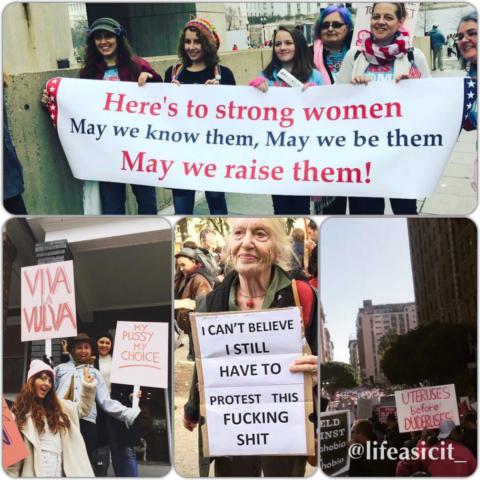 Here's to strong women
May we know them, May we be them
May we raise them!
VIVA
LA
VULVA
MY
PUSSY
MY
CHOICE
I CAN'T BELIEVE
I STILL
HAVE TO
PROTEST THIS
FUCKING
SHIT
UTERUSES
before
DUDERUSES
@lifeasicit_